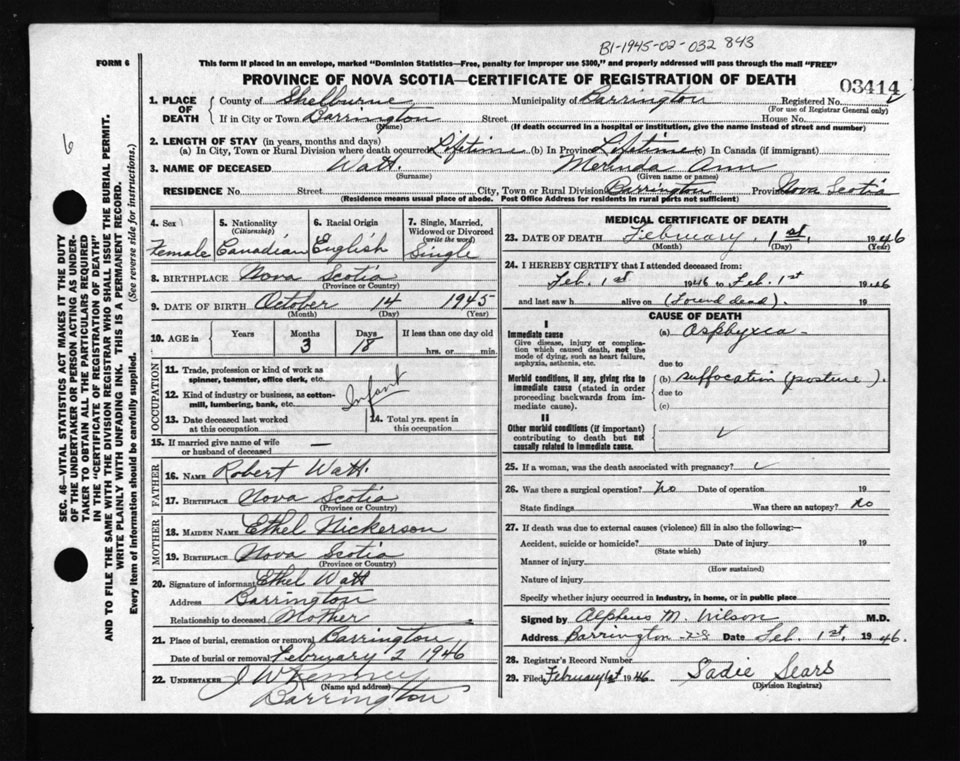 B1-1945-02-032 843
FORM 6
This form if placed in an envelope, marked "Dominion Statistics—Free, penalty for improper use $300," and properly addressed will pass through the mail "FREE"
PROVINCE OF NOVA SCOTIA—CERTIFICATE OF REGISTRATION OF DEATH
03414
1. PLACE OF DEATH
County of Shelburne Municipality of Barrington Registered No.
(For use of Registrar General only)
If in City or Town Barrington Street House No.
(Name) (If death occurred in a hospital or institution, give the name instead of street and number)
2. LENGTH OF STAY (in years, months and days)
(a) In City, Town or Rural Division where death occurred Lifetime (b) In Province Lifetime (c) In Canada (if immigrant)
3. NAME OF DECEASED Watt. Merinda Ann
(Surname) (Given name or names)
RESIDENCE No. Street City, Town or Rural Division Barrington Province Nova Scotia
(Residence means usual place of abode. Post Office Address for residents in rural parts not sufficient)
4. Sex Female
5. Nationality (Citizenship) Canadian
6. Racial Origin English
7. Single, Married, Widowed or Divorced (write the word) Single
8. BIRTHPLACE Nova Scotia
(Province or Country)
9. DATE OF BIRTH October 14 1945
(Month) (Day) (Year)
10. AGE in Years Months 3 Days 18 If less than one day old
hrs. or min.
OCCUPATION
11. Trade, profession or kind of work as spinner, teamster, office clerk, etc.
12. Kind of industry or business, as cotton-mill, lumbering, bank, etc. Infant
13. Date deceased last worked at this occupation
14. Total yrs. spent in this occupation
15. If married give name of wife or husband of deceased —
FATHER
16. NAME Robert Watt.
17. BIRTHPLACE Nova Scotia
(Province or Country)
MOTHER
18. MAIDEN NAME Ethel Nickerson
19. BIRTHPLACE Nova Scotia
(Province or Country)
20. Signature of informant Ethel Watt
Address Barrington
Relationship to deceased Mother
21. Place of burial, cremation or removal Barrington
Date of burial or removal February 2 1946
22. UNDERTAKER J W Kenney
(Name and address)
Barrington
MEDICAL CERTIFICATE OF DEATH
23. DATE OF DEATH February 1st 1946
(Month) (Day) (Year)
24. I HEREBY CERTIFY that I attended deceased from:
Feb. 1st 1946 to Feb. 1st 1946
and last saw h alive on (Found dead). 19
CAUSE OF DEATH
I
Immediate cause
Give disease, injury or complication which caused death, not the mode of dying, such as heart failure, asphyxia, asthenia, etc.
(a) Asphyxia -
due to
Morbid conditions, if any, giving rise to immediate cause (stated in order proceeding backwards from immediate cause).
(b) suffocation (posture).
due to
(c)
II
Other morbid conditions (if important) contributing to death but not causally related to immediate cause.
25. If a woman, was the death associated with pregnancy?
26. Was there a surgical operation? no Date of operation 19
State findings Was there an autopsy? no
27. If death was due to external causes (violence) fill in also the following:—
Accident, suicide or homicide? Date of injury 19
(State which)
Manner of injury
(How sustained)
Nature of injury
Specify whether injury occurred in industry, in home, or in public place
Signed by Alpheus M. Wilson M.D.
Address Barrington N.S Date Feb. 1st, 1946.
28. Registrar's Record Number
29. Filed February 1946 Sadie Sears
(Division Registrar)
6
SEC. 46—VITAL STATISTICS ACT MAKES IT THE DUTY
OF THE UNDERTAKER OR PERSON ACTING AS UNDER-
TAKER TO OBTAIN ALL THE PARTICULARS REQUIRED
IN THE "CERTIFICATE OF REGISTRATION OF DEATH"
AND TO FILE THE SAME WITH THE DIVISION REGISTRAR WHO SHALL ISSUE THE BURIAL PERMIT.
WRITE PLAINLY WITH UNFADING INK. THIS IS A PERMANENT RECORD.
Every item of information should be carefully supplied. (See reverse side for instructions.)